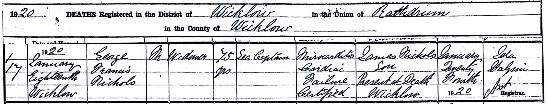 1920 DEATHS Registered in the District of Wicklow in the Union of Rathdrum
in the County of Wicklow
1920 George M Widower 75 Sea Captain James Nichols January
17 January Francis yrs Cardiac Son Twenty
Eighteenth Nichols Failure Present at Death
Wicklow Certified Wicklow 1920 Registrar.